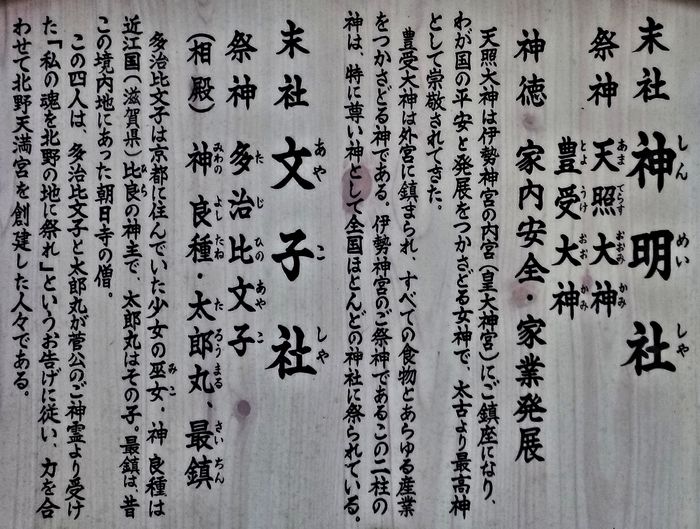 末社 神明社
祭神 天照大神
豊受大神
神徳 家内安全・家業発展
天照大神は伊勢神宮の内宮(皇大神宮)にご鎮座になり、
わが国の平安と発展をつかさどる女神で、太古より最高神
として崇敬されてきた。
豊受大神は外宮に鎮まられ、すべての食物とあらゆる産業
をつかさどる神である。伊勢神宮のご祭神であるこの二柱の
神は、特に尊い神として全国ほとんどの神社に祭られている。
末社 文子社
祭神 多治比文子
(相殿) 神 良種・太郎丸、最鎮
多治比文子は京都に住んでいた少女の巫女。神 良種は
近江国(滋賀県)比良の神主で、太郎丸はその子。最鎮は昔
この境内地にあった朝日寺の僧。
この四人は、多治比文子と太郎丸が菅公のご神霊より受け
た「私の魂を北野の地に祭れ」というお告げに従い、力を合
わせて北野天満宮を創建した人々である。